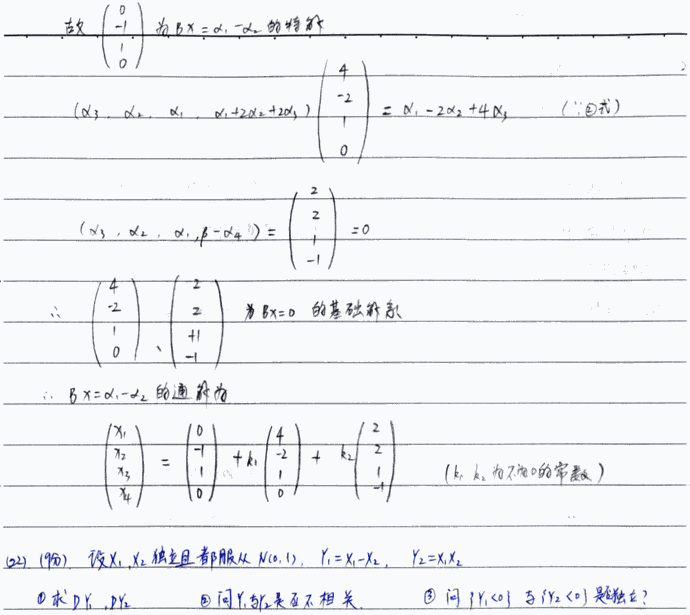 故 (0 -1 1 0) 为 Bx = α₁ - α₂ 的特解
(α₃ , α₂ , α₁ , α₁+2α₂+2α₃) (4 -2 1 0) = α₁ - 2α₂ + 4α₃ (∵①式)
(α₃ , α₂ , α₁ , β-α₄) = (2 2 1 -1) = 0
∴ (4 -2 1 0) 、 (2 2 +1 -1) 为 Bx=0 的基础解系
∴ Bx=α₁-α₂ 的通解为
(x₁ x₂ x₃ x₄) = (0 -1 1 0) + k₁ (4 -2 1 0) + k₂ (2 2 1 -1) (k₁ k₂ 为不为0的常数)
(22) (9分) 设X₁, X₂ 独立且都服从 N(0,1), Y₁=X₁-X₂, Y₂=X₁X₂
①求DY₁, DY₂ ②问Y₁与Y₂是否不相关 ③问{Y₁<0}与{Y₂<0}是否独立?